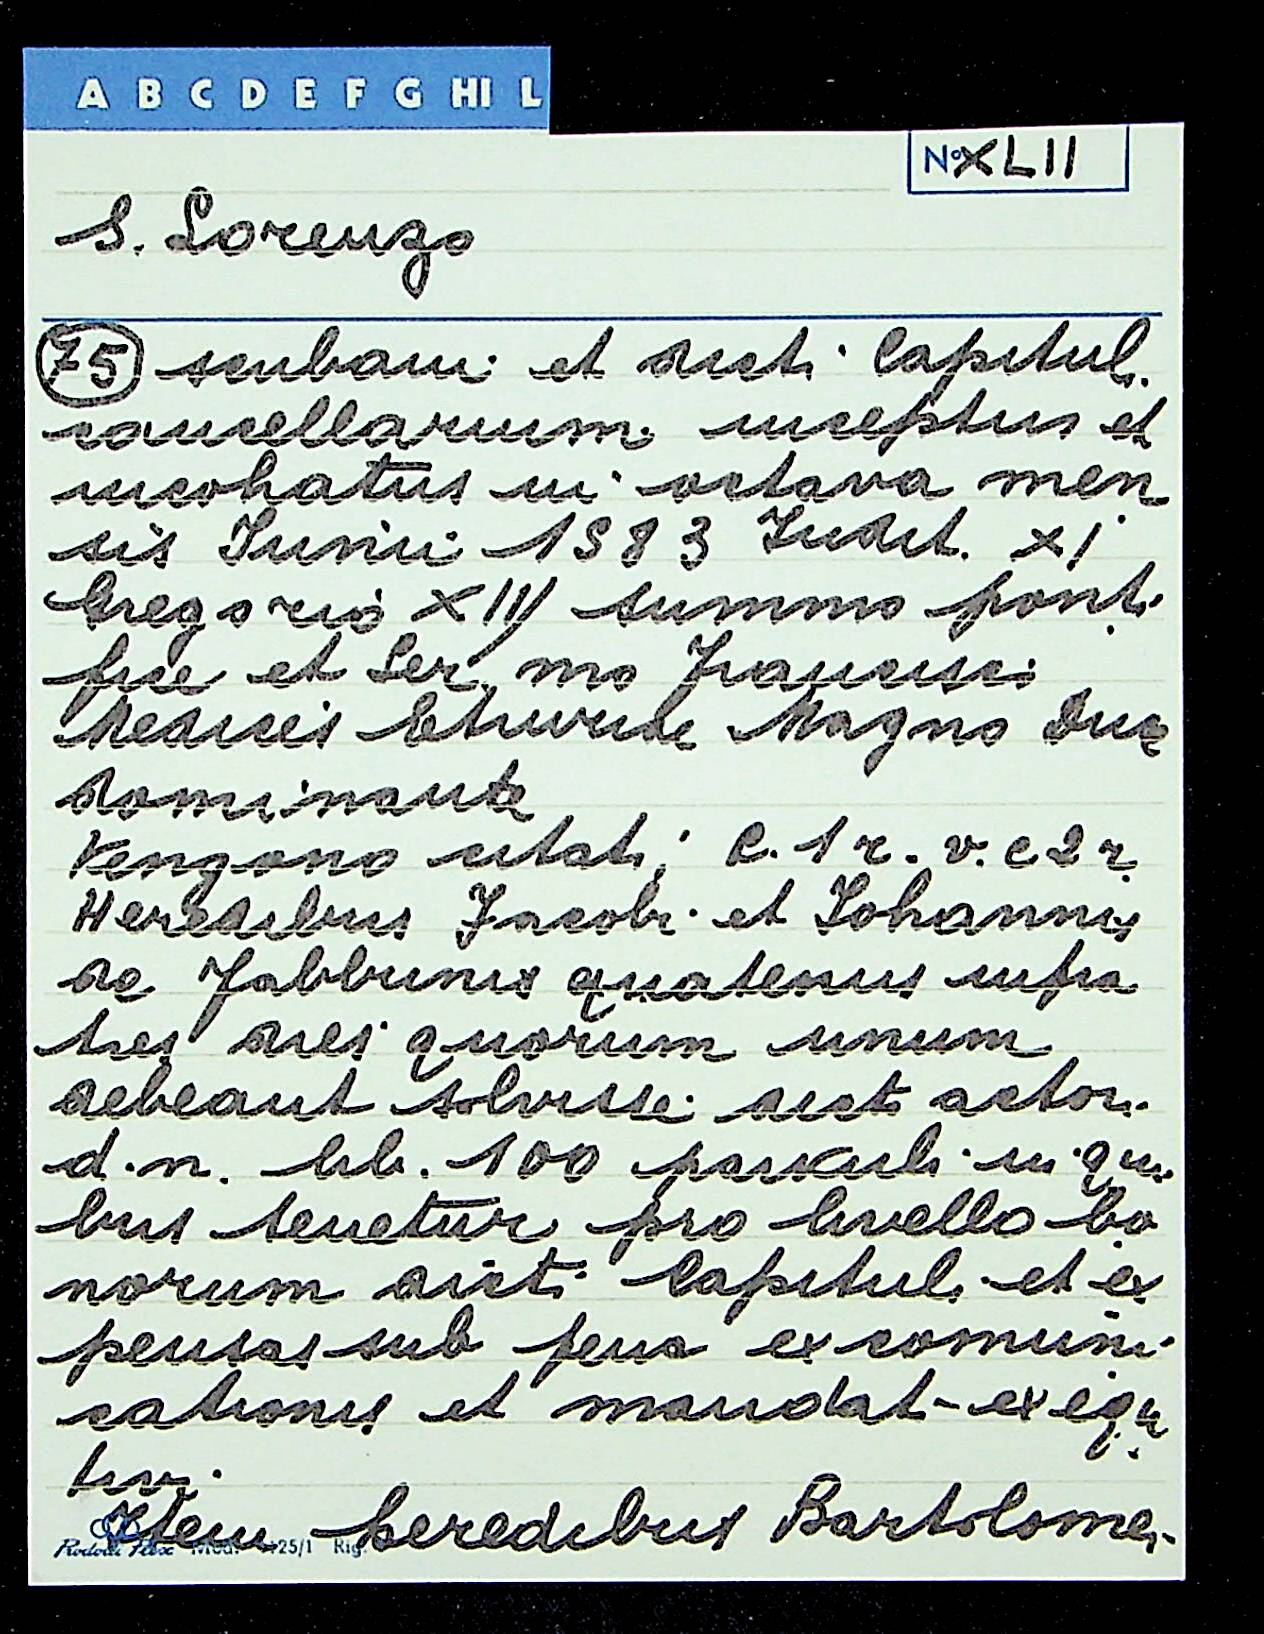 A B C D E F G HI L
N° XLII
S. Lorenzo
75 scribani et dicti Capituli
cancellarium inceptus et
incohatus in octava men
sis Iunii 1583 Indict. XI
Gregorio XIII summo ponti
fice et Ser.mo Francisci
Medicis Etruride Magno Duce
dominante
Vengono citati: C. 1 r. v. c 2 r.
Heredibus Jacobi et Iohannis
de Fabbrinis quatenus infra
tres dies quorum unum
debeant solvisse dicti actori
d. n. lib. 100 parculi in qui
bus tenetur pro livello bo
norum dicti Capituli et ex
pensas sub pena excomuni
cationis et mandat- exequ
tiv.
Item heredibus Bartolomei
Mod. 125/1 Rig.